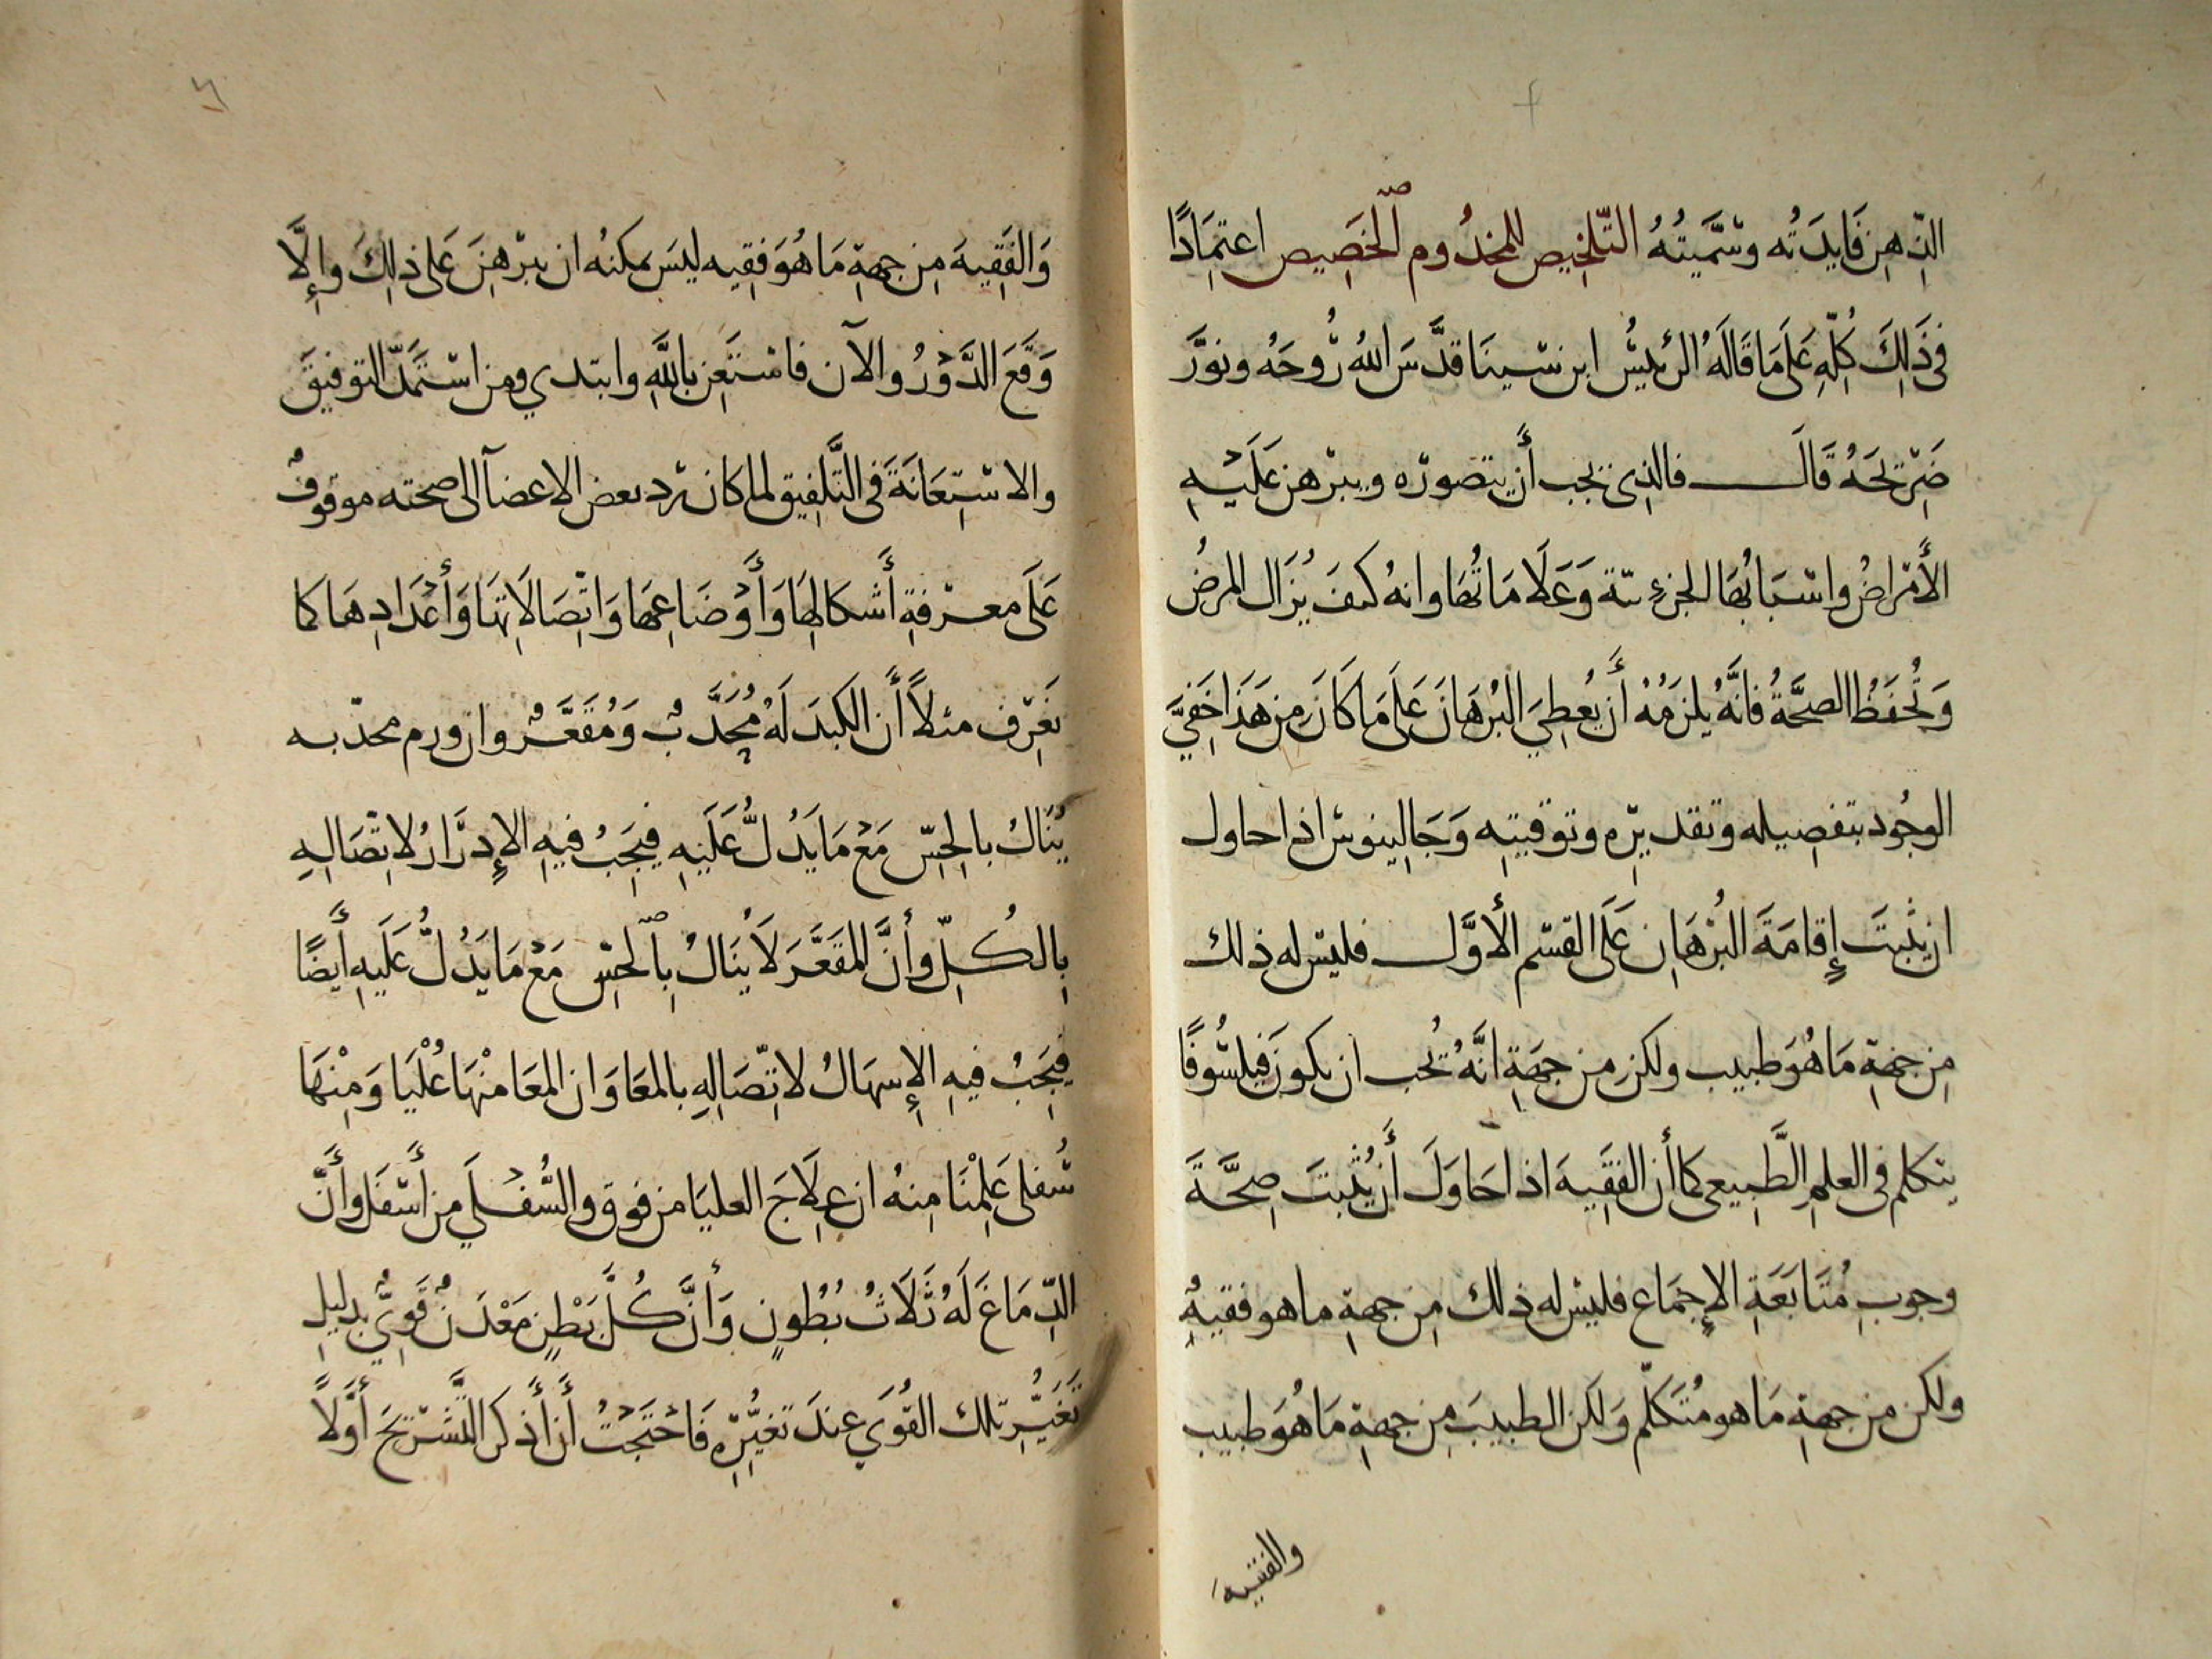 الذِهِن فَايدَتُه وسَمَّيتُهُ التّلخِيص للمخدُوم الخصِيص اعتِمَادًا
فى ذَلِكَ كُلِّهِ عَلَى مَا قَالَهُ الرئيسُ ابن سينَا قدَّسَ اللهُ رُوحَهُ ونوَّرَ
ضَرِيحَهُ قَالَ فالذِى يجب أَن يتصوره ويبرهن عَلَيْهِ
الأَمْراضُ واسْبَابُهَا الجزءِيّة وَعَلَامَاتُهَا وانهُ كيفَ يُزَال المرضُ
وَتُحفَظُ الصحَّةُ فانَّهُ يلزمُهُ أَن يُعطِيَ البُرهَانَ عَلَى مَا كَانَ مِن هَذَا خَفِيَّ
الوجُود بتفصِيله وتقديرِه وتوقيتِه وَجَالِينوس اذا حاول
ان يثبتَ إِقَامَةَ البُرْهَانِ عَلَى القسم الأَوَّل فليس له ذلك
مِن جهَةِ مَا هُوَ طبيب ولكن مِن جهَةِ انَّهُ يُحب ان يكونَ فيلسُوفًا
يتكلم فى العلمِ الطَّبِيعى كما أن الفقِيهَ اذا حَاوَلَ أَن يُثبتَ صِحَّةَ
وجوبِ مُتَابَعَةِ الإِجمَاع فليس له ذلك مِن جهةِ ما هو فقيهٌ
ولكن مِن جهةِ مَا هو مُتَكلّم وَلكن الطبيبَ مِن جهةِ مَا هُوَ طبيب
والفقيهَ
وَالفَقِيهَ مِن جهةِ مَا هُوَ فقِيه ليسَ يمكنُه ان يبرْهِنَ عَلى ذلِكَ وإلَّا
وَقَعَ الدَّوْرُ والآن فاستَعِن بالله وابتدي ومن استَمَدّ التوفيقَ
والاستِعَانَةَ فى التَّلفِيق لما كان رد بعض الاعضآ الى صحته موقوف
عَلَى معرْفةِ أَشكالِهَا وَأَوْضَاعِهَا وَاتِّصَالَاتِهَا وَأَعْدَادِهَا كما
نعَرِف مثلاً أَن الكبدَ لَهُ مُحَدَّبٌ وَمُقَعَّرٌ وان ورم محدّبه
يُنَالُ بالحِسّ مَعْ مَا يَدُلُّ عَلَيهِ فيجِبُ فيهِ الإِدرَارُ لاتِّصَالِهِ
بِالكُلِّ وأنَّ المقَعَّرَ لَا يُنَالُ بِالحسِّ مَعْ مَا يَدُلُّ عَلَيهِ أَيضًا
فيجَبُ فيهِ الإِسهَالُ لاتِّصَالِهِ بالمعَا وَان المعَا مِنْهَا عُلْيَا وَمِنْهَا
سُفلى عَلِمْنَا مِنهُ ان عِلَاجَ العليَا من فوق والسُّفْلَي مِن أَسفَل وأَنَّ
الدِّمَاغَ لَهُ ثَلَاثُ بُطُونٍ وَأَنَّ كُلَّ بَطْنٍ مَعْدَنُ قُوَيً بدليلِ
تَغَيُّرِ تلك القُوَي عِندَ تغيُّرِه فَاحْتَجْتُ أَن أَذكرَ التَّشرْيحَ أَوَّلاً